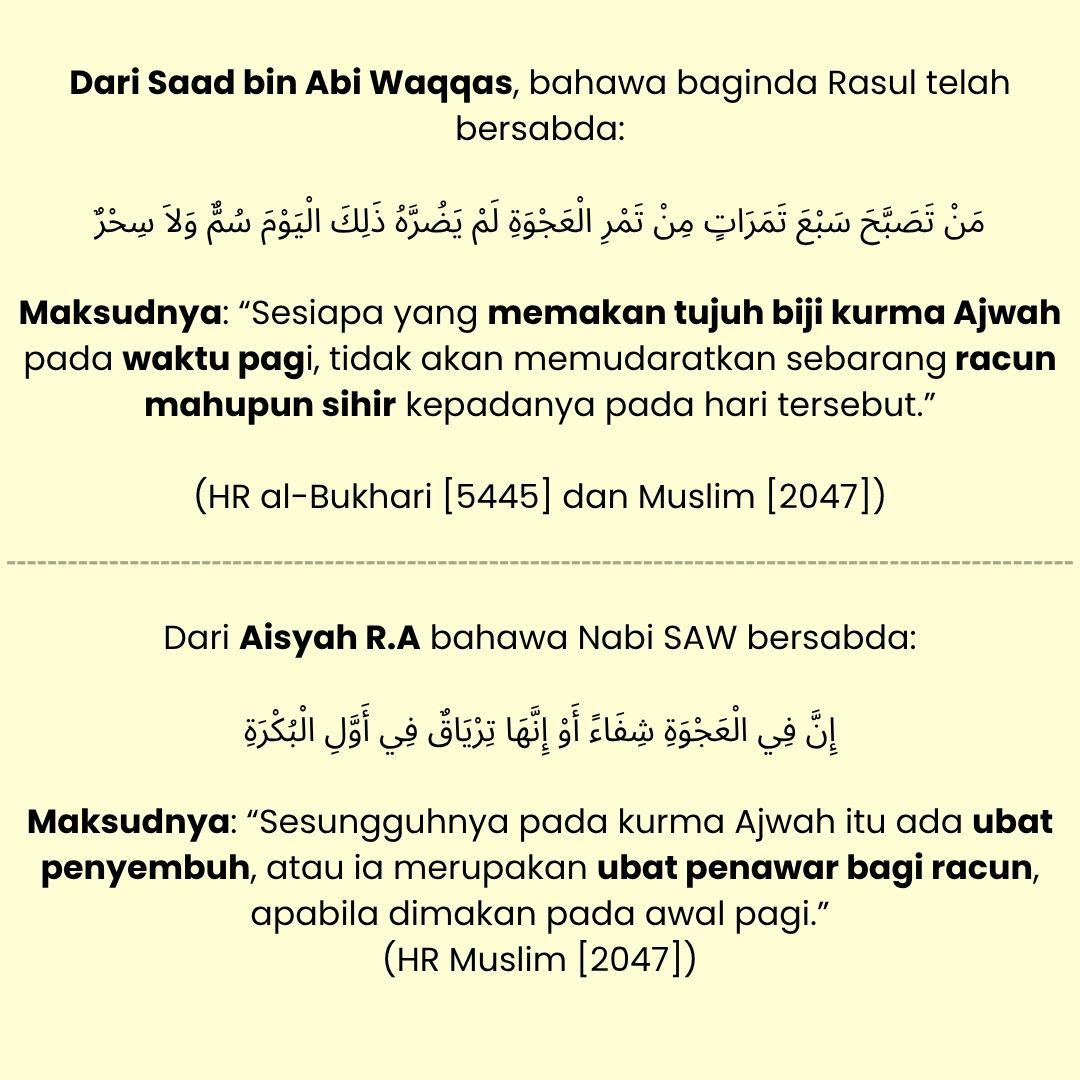 Dari Saad bin Abi Waqqas, bahawa baginda Rasul telah
bersabda:
مَنْ تَصَبَّحَ سَبْعَ تَمَرَاتٍ مِنْ تَمْرِ الْعَجْوَةِ لَمْ يَضُرَّهُ ذَلِكَ الْيَوْمَ سُمٌّ وَلاَ سِحْرٌ
Maksudnya: “Sesiapa yang memakan tujuh biji kurma Ajwah
pada waktu pagi, tidak akan memudaratkan sebarang racun
mahupun sihir kepadanya pada hari tersebut.”
(HR al-Bukhari [5445] dan Muslim [2047])
Dari Aisyah R.A bahawa Nabi SAW bersabda:
إِنَّ فِي الْعَجْوَةِ شِفَاءً أَوْ إِنَّهَا تِرْيَاقٌ فِي أَوَّلِ الْبُكْرَةِ
Maksudnya: “Sesungguhnya pada kurma Ajwah itu ada ubat
penyembuh, atau ia merupakan ubat penawar bagi racun,
apabila dimakan pada awal pagi.”
(HR Muslim [2047])